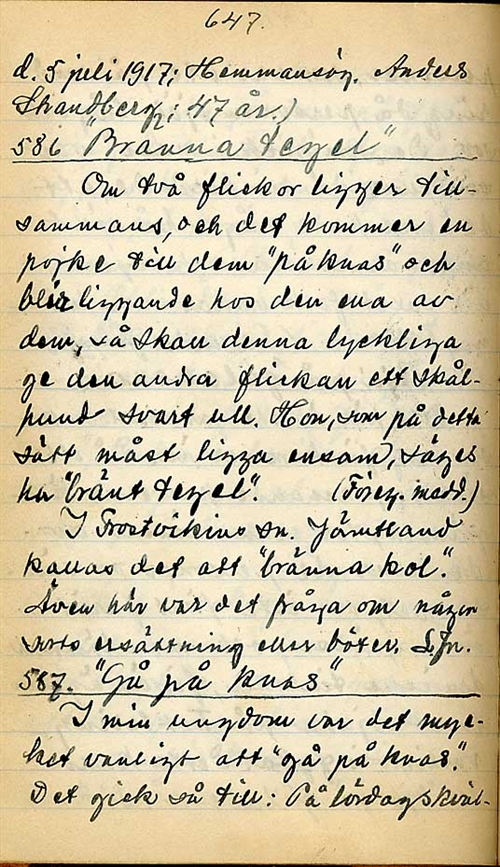 647.
d. 5 juli 1917; Hemmansäg. Anders
Strandberg; 47 år.)
586 "Bränna tegel"
Om två flickor ligger till-
sammans, och det kommer en
pojke till dem "på knas" och
blir liggande hos den ena av
dem, så skall denna lyckliga
ge den andra flickan ett skål-
pund svart ull. Hon, som på detta
sätt måst ligga ensam, säges
ha "bränt tegel". (Föreg. medd.)
I Frostvikens sn. Jämtland
kallas det att "bränna kol."
Även här var det fråga om någon
sorts ersättning eller böter.
587. "Gå på knas"
I min ungdom var det myc-
ket vanligt att "gå på knas."
Det gick så till: På lördagskväl-